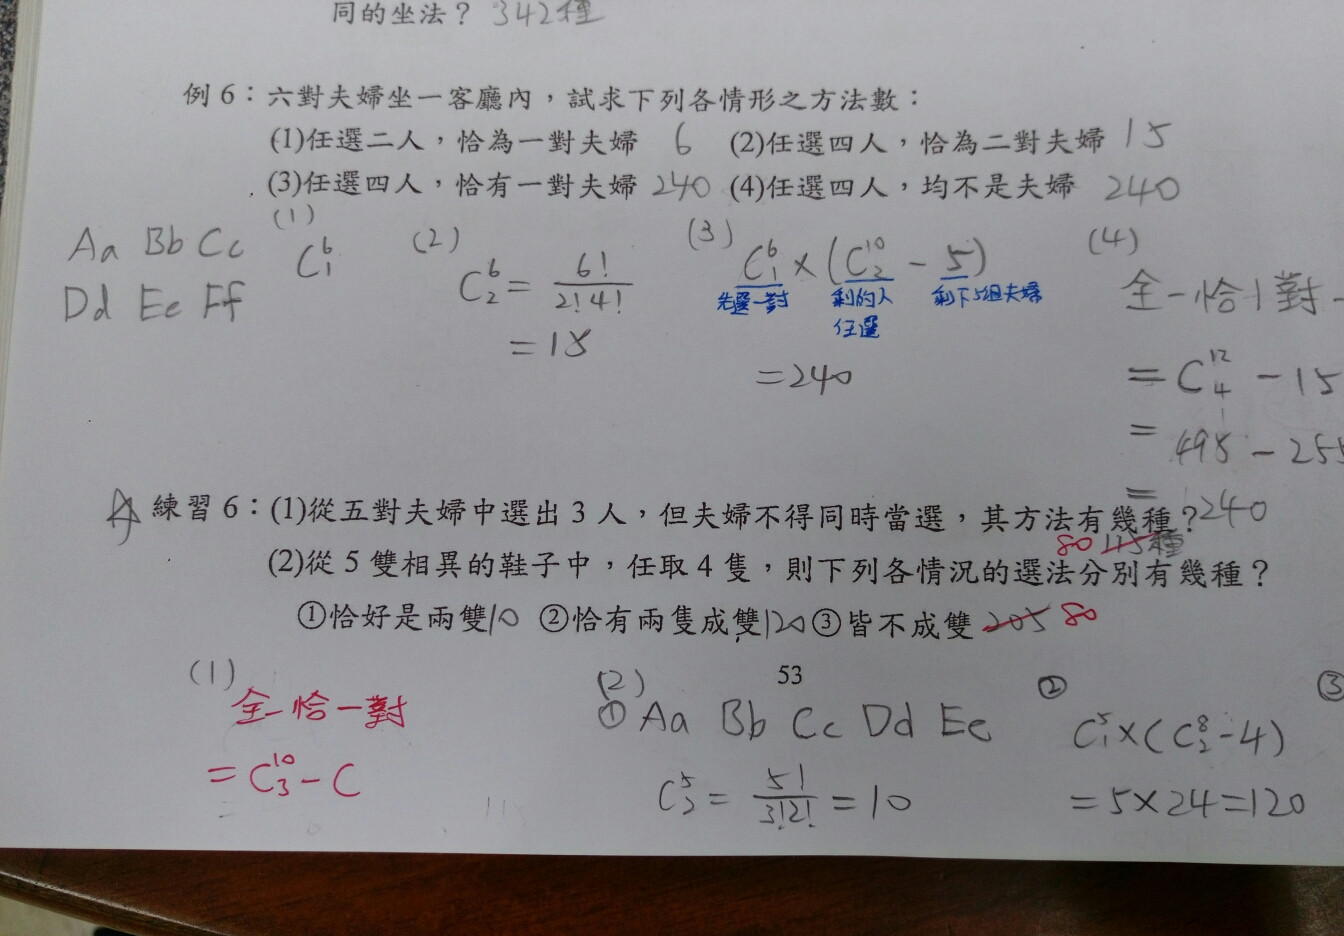 同的坐法？ 342種
例 6：六對夫婦坐一客廳內，試求下列各情形之方法數：
(1)任選二人，恰為一對夫婦 6 (2)任選四人，恰為二對夫婦 15
(3)任選四人，恰有一對夫婦 240 (4)任選四人，均不是夫婦 240
Aa Bb Cc
Dd Ee Ff
(1)
C⁶₁
(2)
C⁶₂ = 6!/2!4!
= 15
(3)
C⁶₁ × (C¹⁰₂ - 5)
先選一對 剩的人 剩下5組夫婦
任選
= 240
(4)
全 - 恰1對 -
= C¹²₄ - 15
= 495 - 255
= 240
練習 6：(1)從五對夫婦中選出 3 人，但夫婦不得同時當選，其方法有幾種？
80 115種
(2)從 5 雙相異的鞋子中，任取 4 隻，則下列各情況的選法分別有幾種？
①恰好是兩雙 10 ②恰有兩隻成雙 120 ③皆不成雙 205 80
53
(1)
全 - 恰一對
= C¹⁰₃ - C
(2)
① Aa Bb Cc Dd Ee
C⁵₂ = 5!/3!2! = 10
②
C⁵₁ × (C⁸₂ - 4)
= 5 × 24 = 120
③